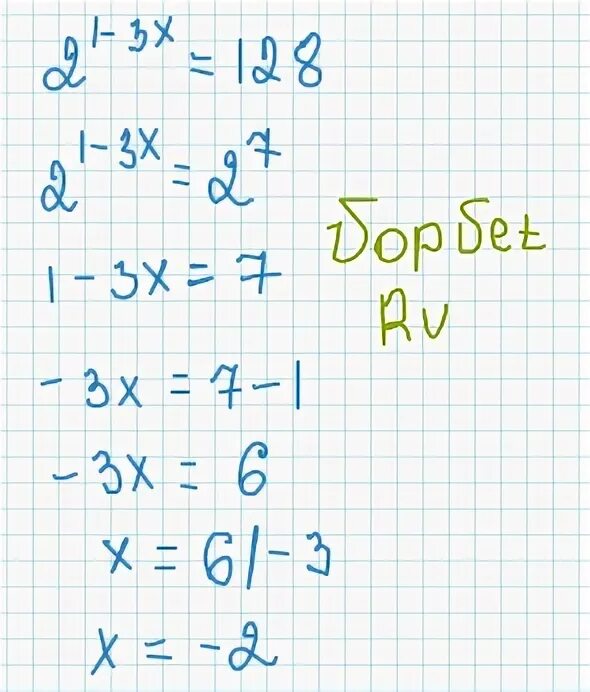 2^{1-3x} = 128
2^{1-3x} = 2^7
1 - 3x = 7
- 3x = 7 - 1
- 3x = 6
x = 6/-3
x = -2
борбеt
Rv